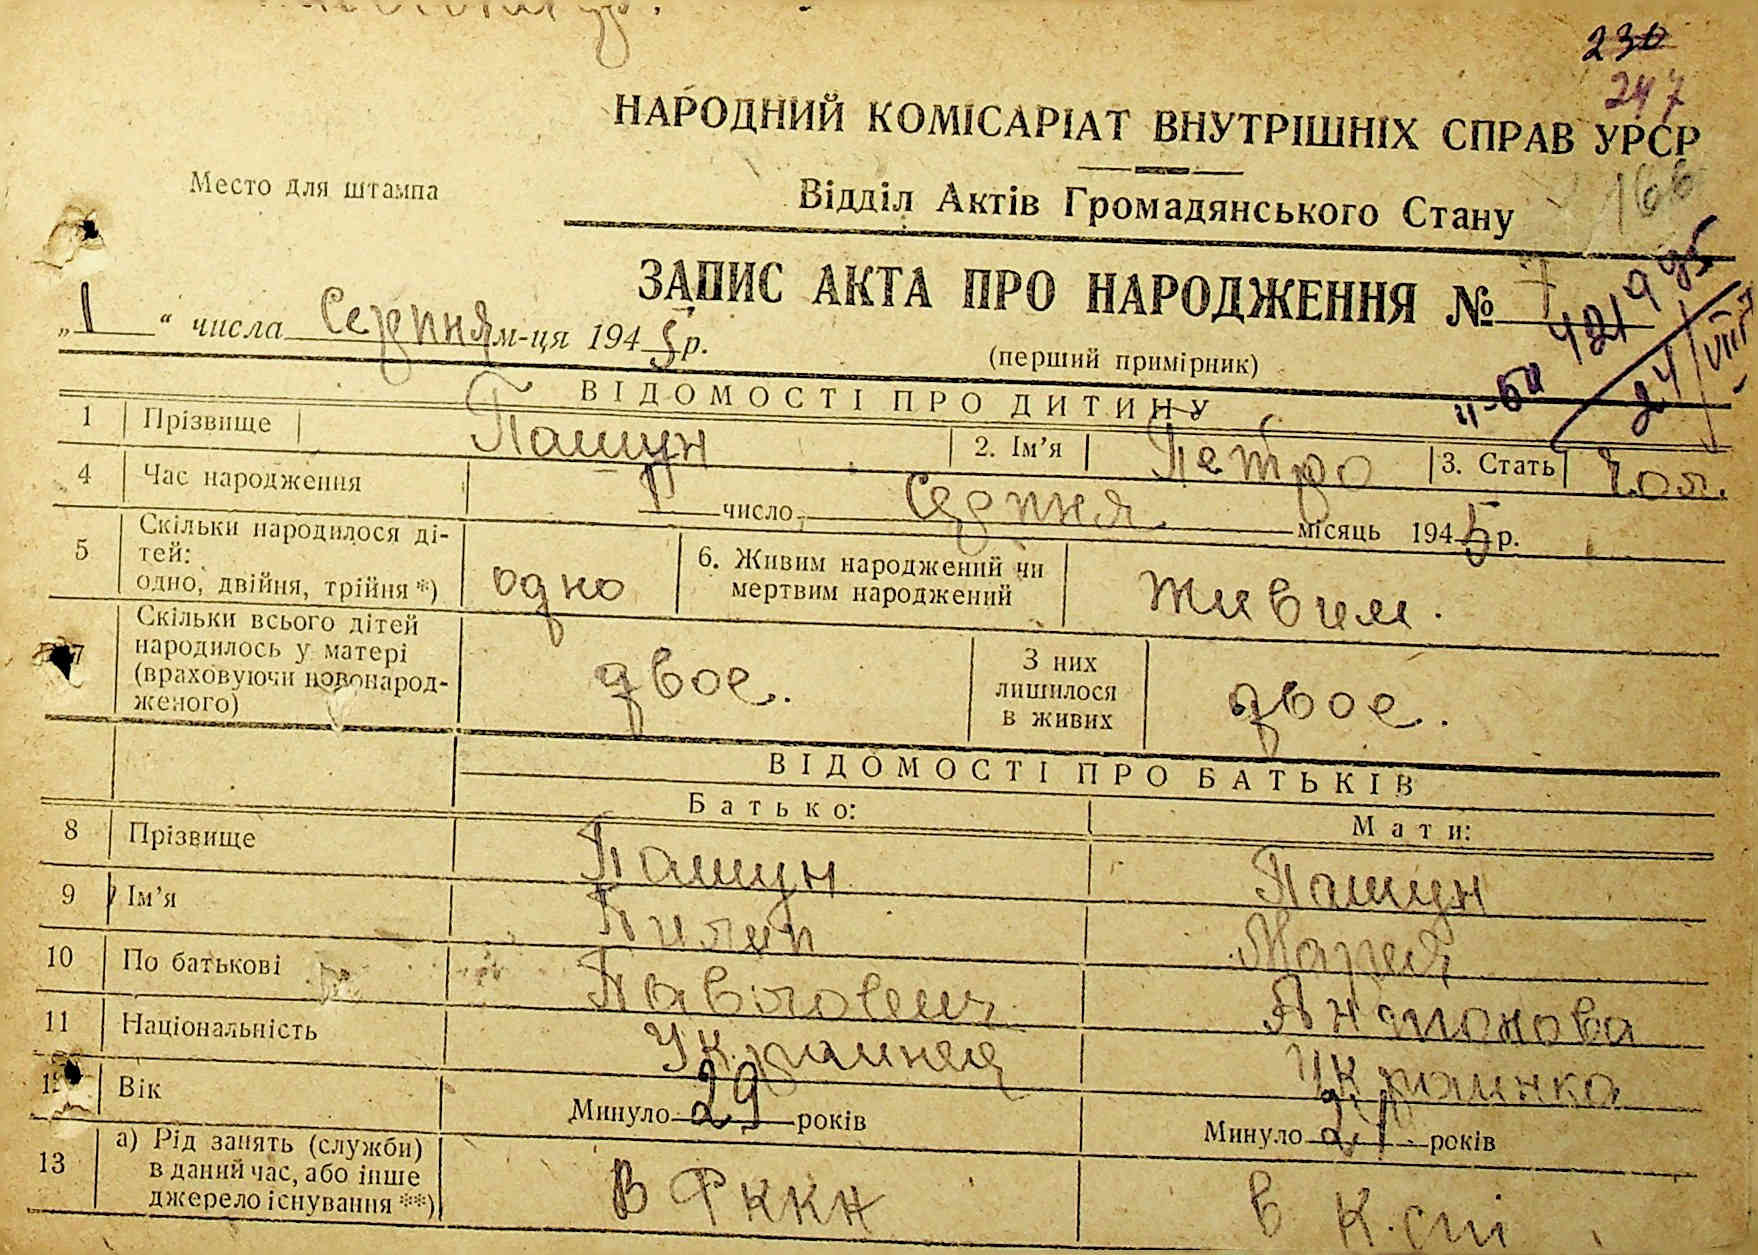 230
247
НАРОДНИЙ КОМІСАРІАТ ВНУТРІШНІХ СПРАВ УРСР
166
Место для штампа
Відділ Актів Громадянського Стану
ЗАПИС АКТА ПРО НАРОДЖЕННЯ № 7
„1“ числа Серпня м-ця 1945 р.
(перший примірник)
ІІ-БП 421995
24/VIII
ВІДОМОСТІ ПРО ДИТИНУ
1 Прізвище Пашун 2. Ім’я Петро 3. Стать Чол.
4 Час народження 1 число Серпня місяць 1945 р.
5 Скільки народилося ді-
тей:
одно, двійня, трійня *) одно 6. Живим народжений чи
мертвим народжений Живим.
7 Скільки всього дітей
народилось у матері
(враховуючи новонарод-
женого) двое. З них
лишилося
в живих двое.
ВІДОМОСТІ ПРО БАТЬКІВ
Батько: Мати:
8 Прізвище Пашун Пашун
9 Ім’я Пилип Мария
10 По батькові Павлович Антонова
11 Національність Украинец Украинка
12 Вік Минуло 29 років Минуло 21 років
13 а) Рід занять (служби)
в даний час, або інше
джерело існування **) В РККА в к.спі